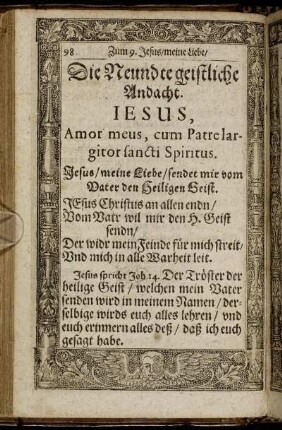 98 Zum 9. Jesus/meine Liebe/
Die Neundte geistliche
Andacht.
IESUS,
Amor meus, cum Patre lar-
gitor sancti Spiritus.
Jesus/meine Liebe/sendet mir vom
Vater den Heiligen Geist.
JEsus Christus an allen endn/
Vom Vatr wil mir den H. Geist
sendn/
Der widr mein Feinde für mich streit/
Vnd mich in alle Warheit leit.
Jesus spricht Joh. 14. Der Tröster der
heilige Geist / welchen mein Vater
senden wird in meinem Namen / der-
selbige wirds euch alles lehren / vnd
euch erinnern alles deß / daß ich euch
gesagt habe.